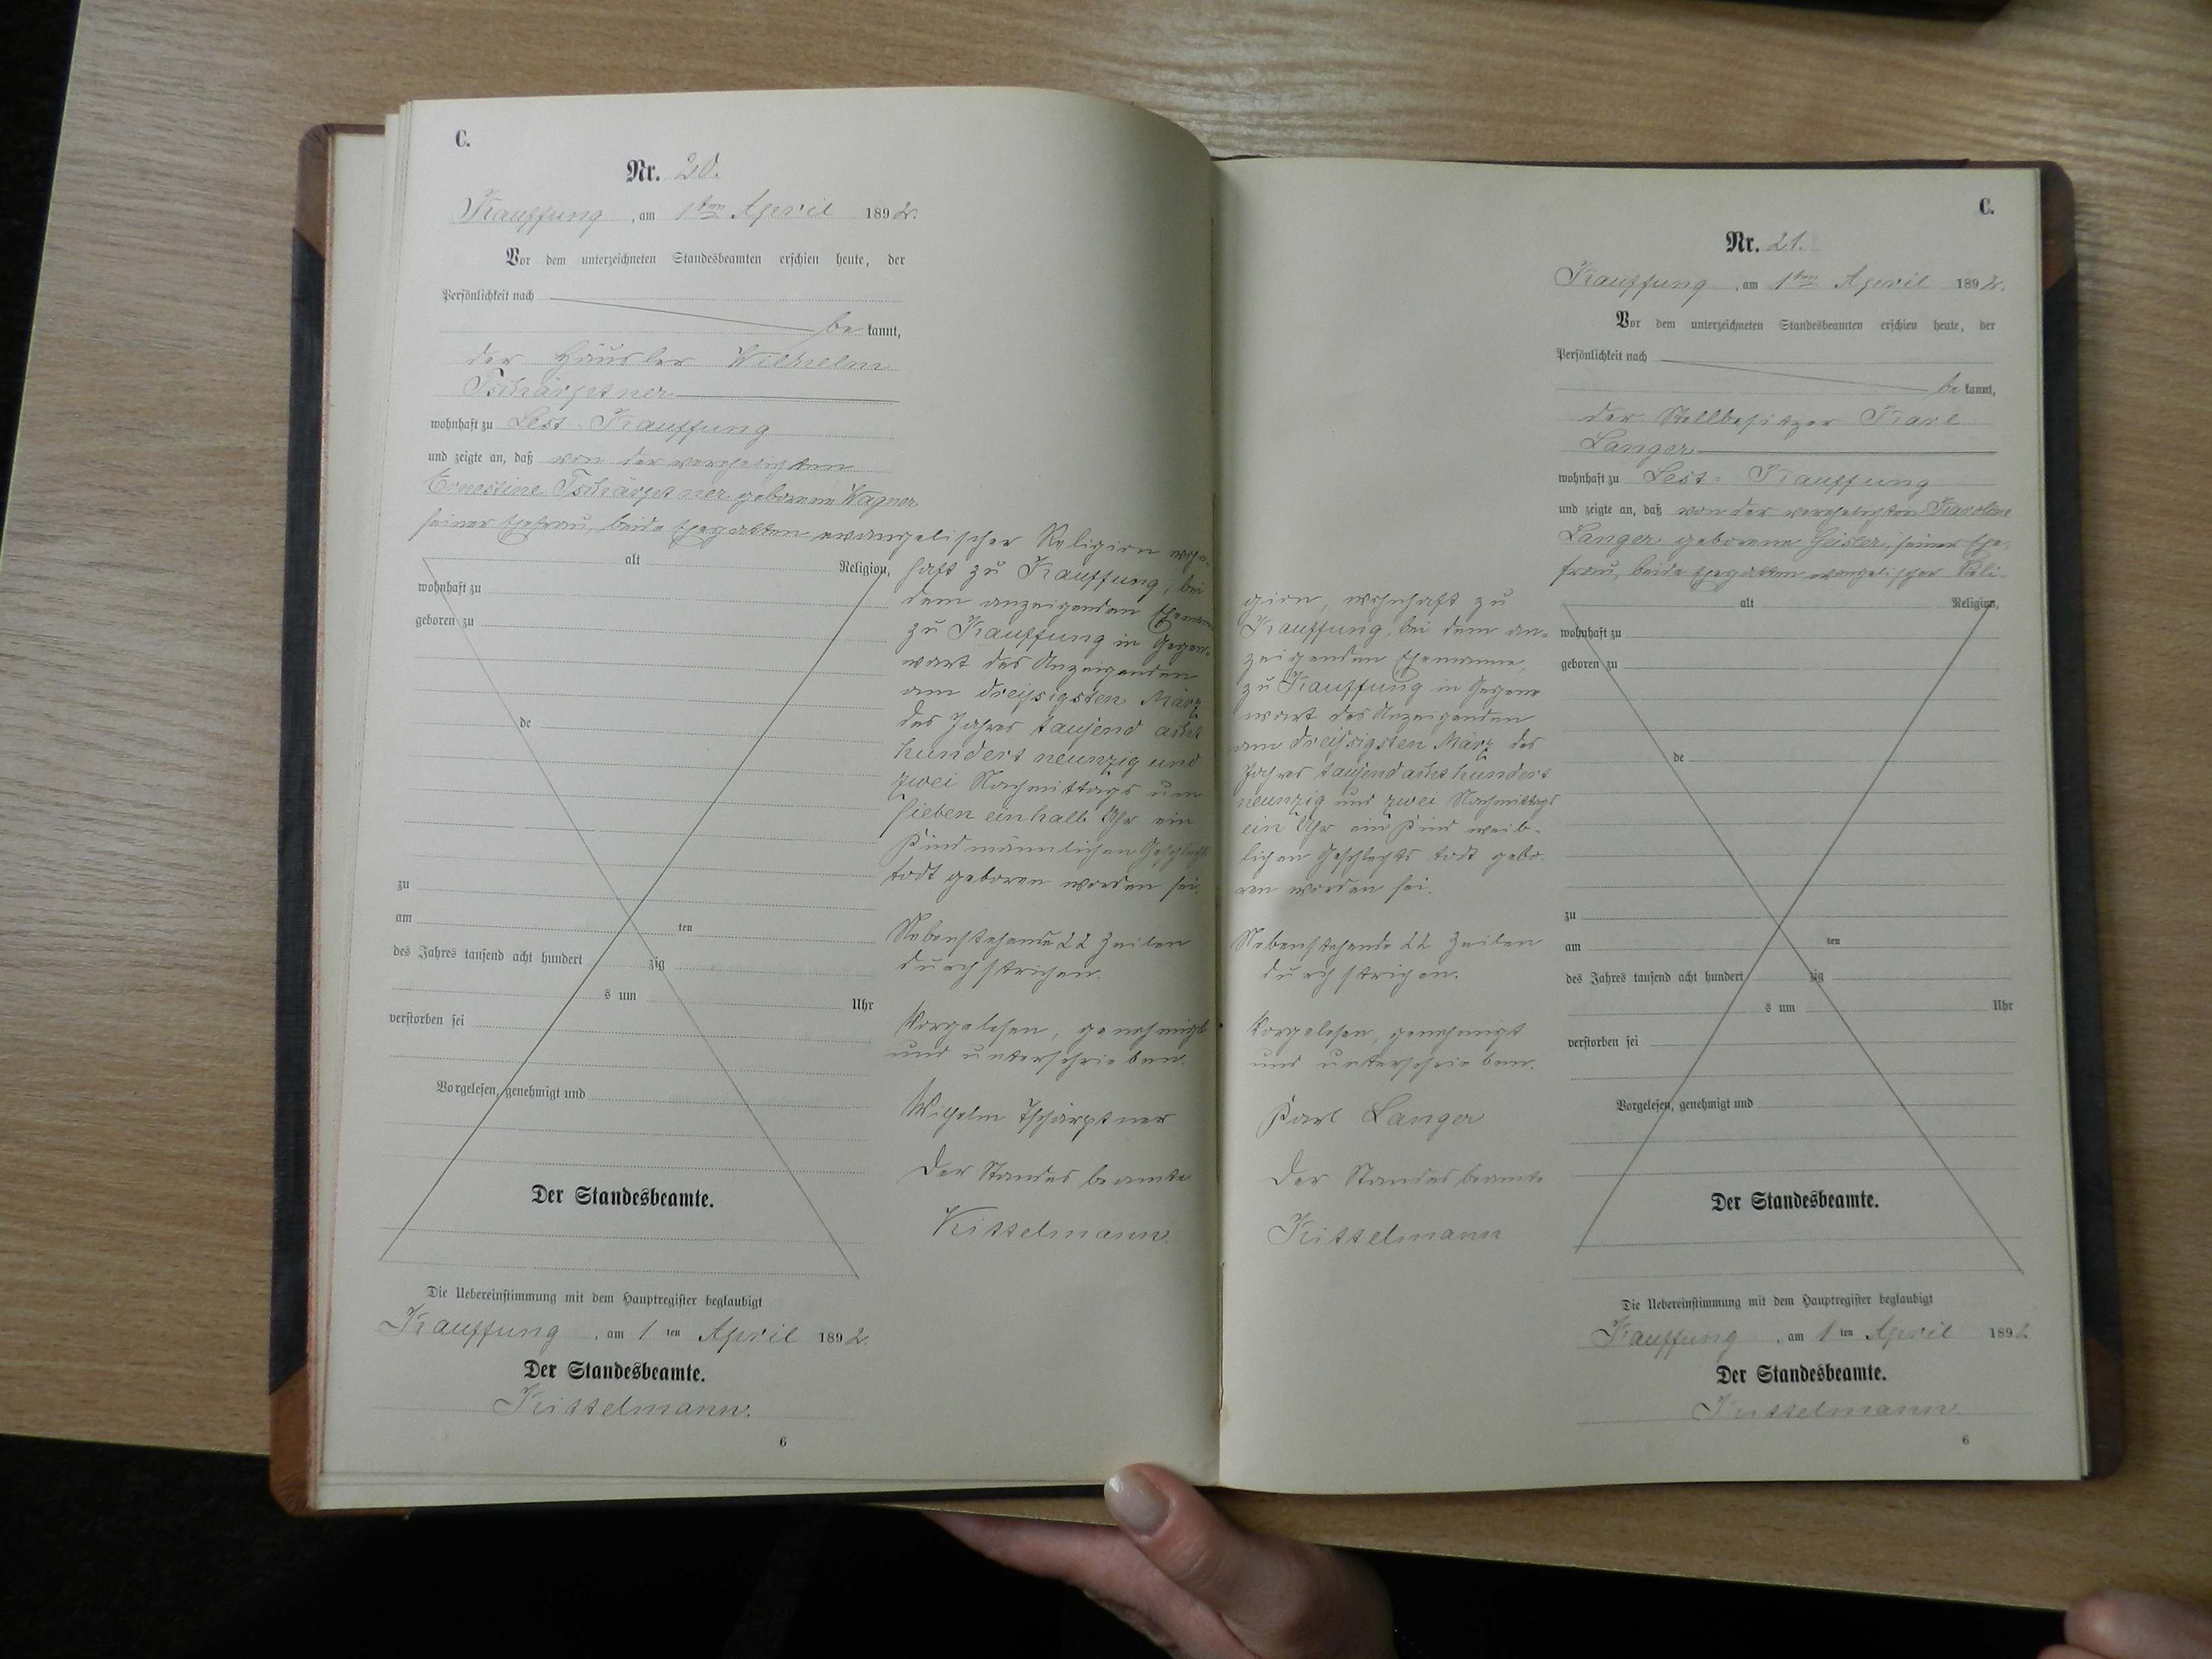 C.
Nr. 20.
Kauffung, am 1ten April 1892.
Vor dem unterzeichneten Standesbeamten erschien heute, der
Persönlichkeit nach
be kannt,
der Häusler Wilhelm
Tschärptner
wohnhaft zu Lest-Kauffung
und zeigte an, daß von der verehelichten
Ernestine Tschärptner geborenen Wagner
seiner Ehefrau, beide Ehegatten evangelischer Religion wohn-
alt Religion,
wohnhaft zu
geboren zu
de
zu
am ten
des Jahres tausend acht hundert zig
s um Uhr
verstorben sei
Vorgelesen, genehmigt und
Der Standesbeamte.
haft zu Kauffung, bei
dem anzeigenden Ehemann
zu Kauffung in Gegen-
wart des Anzeigenden
am dreißigsten März
des Jahres tausend acht
hundert neunzig und
zwei Nachmittags um
sieben einhalb Uhr ein
Kind männlichen Geschlechts
todt geboren worden sei.
Nebenstehende 22 Zeilen
durchstrichen.
Vorgelesen, genehmigt
und unterschrieben.
Wilhelm Tschärptner
Der Standesbeamte
Kittelmann.
Die Uebereinstimmung mit dem Hauptregister beglaubigt
Kauffung, am 1 ten April 1892.
Der Standesbeamte.
Kittelmann.
6
C.
Nr. 21.
Kauffung, am 1ten April 1892.
Vor dem unterzeichneten Standesbeamten erschien heute, der
Persönlichkeit nach
be kannt,
der Stellbesitzer Karl
Langer
wohnhaft zu Lest-Kauffung
und zeigte an, daß von der verehelichten Karoline
Langer geborenen Geisler, seiner Ehe-
frau, beide Ehegatten evangelischer Reli-
gion, wohnhaft zu
Kauffung, bei dem an-
zeigenden Ehemanne,
zu Kauffung in Gegen
wart des Anzeigenden
am dreißigsten März des
Jahres tausend acht hundert
neunzig und zwei Nachmittags
ein Uhr ein Kind weib-
lichen Geschlechts todt gebo-
ren worden sei.
Nebenstehende 22 Zeilen
durchstrichen.
Vorgelesen, genehmigt
und unterschrieben.
Karl Langer
Der Standesbeamte
Kittelmann
alt Religion,
wohnhaft zu
geboren zu
de
zu
am ten
des Jahres tausend acht hundert zig
s um Uhr
verstorben sei
Vorgelesen, genehmigt und
Der Standesbeamte.
Die Uebereinstimmung mit dem Hauptregister beglaubigt
Kauffung, am 1 ten April 1892
Der Standesbeamte.
Kittelmann.
6